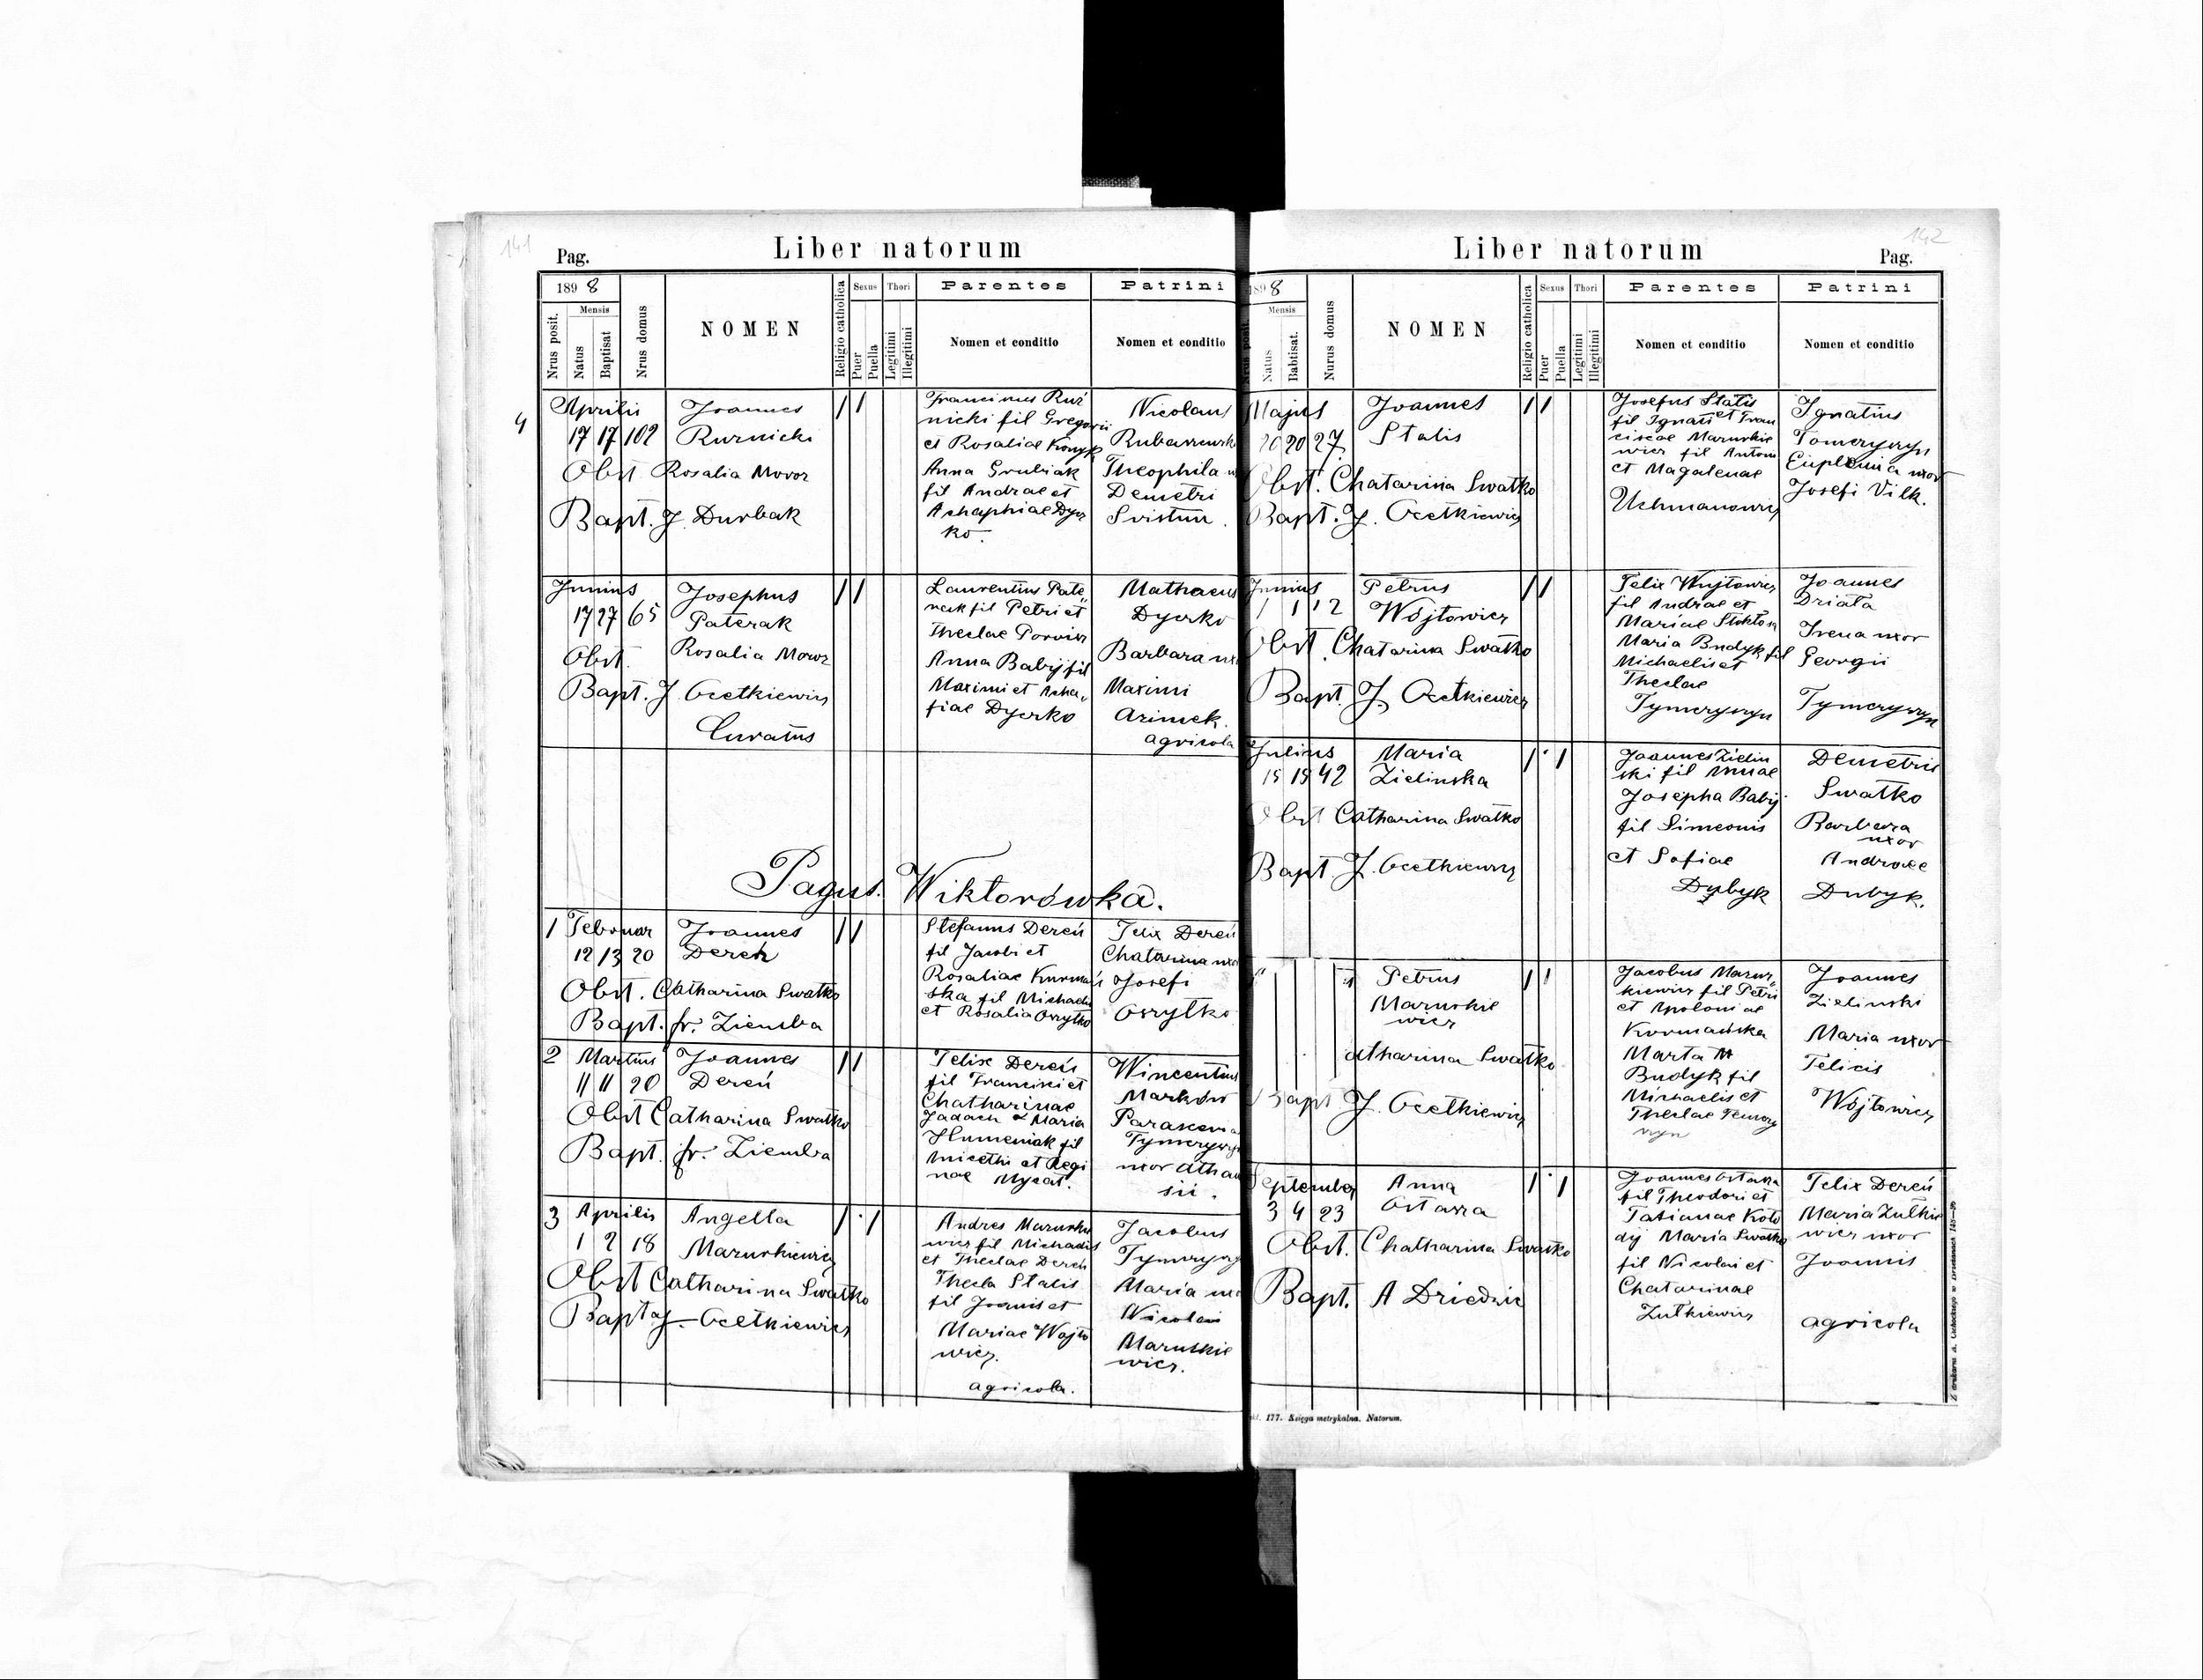 141
Pag.
Liber natorum
189 8
Mensis
Nrus posit.
Natus
Baptisat
Nrus domus
NOMEN
Religio catholica
Sexus
Puer
Puella
Thori
Legitimi
Illegitimi
Parentes
Nomen et conditio
Patrini
Nomen et conditio
4 Aprilis
17 17 102
Joannes
Rurnicki
Obst Rosalia Moroz
Bapt. J. Durbak
nicki fil Gregorii
et Rosaliae Konyk
Anna Grubiak
fil Andrae et
ko.
Nicolaus
Theophila
Demetri
Svistun.
Junius
17 27 65
Josephus
Paterak
Obst. Rosalia Moroz
Bapt. J. Ocetkiewicz
Curatus
Laurentius Pate
rak fil Petri et
Theclae
Anna Babij fil
Maximi et Acha
fiae Dycrko
Mathaeus
Dycrko
Barbara
Maximi
Arimek.
agricola
Pagus. Wiktorówka.
1 Februar
12 13 20
Joannes
Dereń
Obst. Catharina Swatko
Bapt. fr. Ziemba
Stefanus Dereń
fil Jacobi et
Rosaliae Kurmań
ska fil Michaelis
et Rosalia Osrytko
Felix Dereń
Chatarina
Josefi
Osrytko
2 Martius
11 11 20
Joannes
Dereń
Obst Catharina Swatko
Bapt. fr. Ziemba
Felix Dereń
fil Francisci et
Chatharinae
Jadach & Maria
Humeniak fil
et Regi
nae Mycat.
Wincentius
Markow
Parascevia
uxor Atha
sii.
3 Aprilis
1 2 18
Angella
Maruskiewicz
Obst Catharina Swatko
Bapt J. Ocetkiewicz
Andres Marusky
wicz fil Michaelis
et Theclae Dereń
Thecla Stalis
fil Joannis et
Mariae Wojto
wicz.
agricola.
Jacobus
Maria
Nicolai
Maruskie
wicz.
142
Liber natorum
Pag.
1898
Mensis
Natus
Babtisat.
Nurus domus
NOMEN
Religio catholica
Sexus
Puer
Puella
Thori
Legitimi
Illegitimi
Parentes
Nomen et conditio
Patrini
Nomen et conditio
Majus
20 20 27
Joannes
Stalis
Obst. Chatarina Swatko
Bapt. J. Ocetkiewicz
Josefus Stalis
fil Ignatii et Fran
ciscae Maruskie
wicz fil Antoni
et Magalenae
Uchmanowicz
Ignatius
Tomerywyn
Euphemia uxor
Josefi Vilk.
Junius
1 1 12
Petrus
Wójtowicz
Obst. Chatarina Swatko
Bapt. J. Ocetkiewicz
Felix Wujtowicz
fil Andrae et
Mariae Stoktosa
Maria Budyk fil
Michaelis et
Theclae
Tymerywyn
Joannes
Driata
Irena uxor
Georgii
Tymerywyn
Julius
15 15 42
Maria
Zielinska
Obst Catharina Swatko
Bapt J. Ocetkiewicz
Joannes Zielin
ski fil Annae
Josepha Babij
fil Simeonis
et Sofiae
Dubyk
Demetrii
Swatko
Barbara
uxor
Andreae
Dubyk.
Petrus
Maruskie
wicz
atharina Swatko
Bapt J. Ocetkiewicz
Jacobus Marus
kiewicz fil Petri
et Apoloniae
Kurmańska
Marta
Budyk fil
Michaelis et
Theclae Temery
wyn
Joannes
Zielinski
Maria uxor
Felicis
Wójtowicz
September
3 4 23
Anna
Ostasza
Obst. Chatharina Swatko
Bapt. A Driedzic
fil Theodori et
Tatianae Koło
dij Maria Swatko
fil Nicolai et
Chatarinae
Zutkiewicz
Felix Dereń
Maria Zutkie
wicz uxor
Joannis
agricola
177. Księga metrykalna. Natorum.